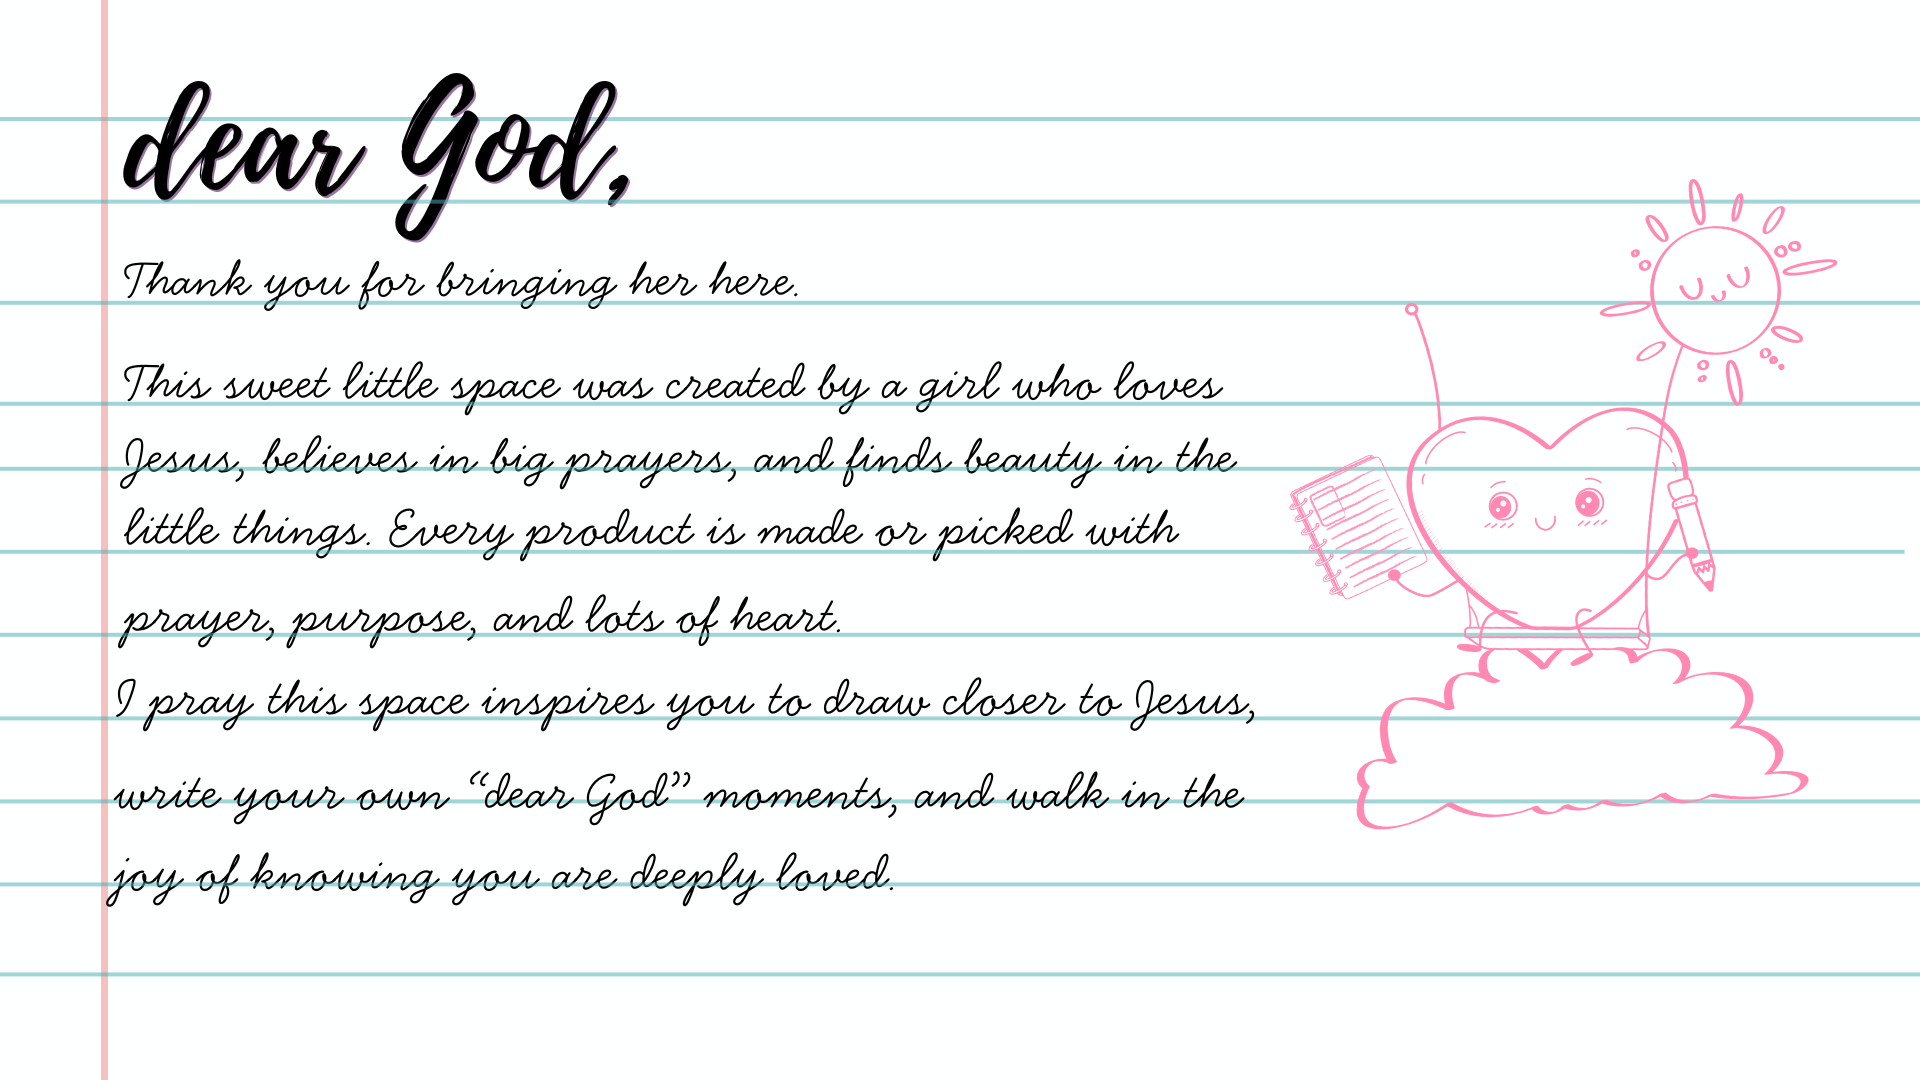 dear God,
Thank you for bringing her here.
This sweet little space was created by a girl who loves
Jesus, believes in big prayers, and finds beauty in the
little things. Every product is made or picked with
prayer, purpose, and lots of heart.
I pray this space inspires you to draw closer to Jesus,
write your own “dear God” moments, and walk in the
joy of knowing you are deeply loved.